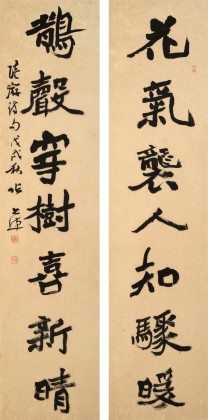 花氣襲人知驟暖
鵲聲穿樹喜新晴
戊戌秋